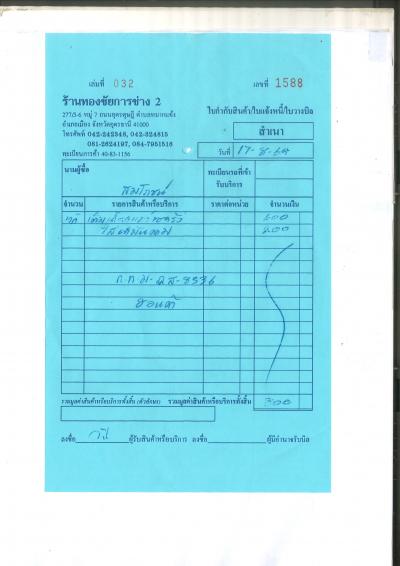 เล่มที่ 032 เลขที่ 1588
ร้านทองชัยการช่าง 2
277/5-6 หมู่ 7 ถนนอุดรดุษฎี ตำบลหมากแข้ง
อำเภอเมือง จังหวัดอุดรธานี 41000
โทรศัพท์ 042-242348, 042-324815
081-2624197, 084-7951516
ทะเบียนการค้า 40-83-1156
ใบกำกับสินค้า/ใบแจ้งหนี้/ใบวางบิล
สำเนา
วันที่ 17-8-
นามผู้ซื้อ
ทะเบียนรถที่เข้ารับบริการ
จำนวน รายการสินค้าหรือบริการ ราคาต่อหน่วย จำนวนเงิน
200
ก ท ม - ฉ ส - 8336
ฮอนด้า
รวมมูลค่าสินค้าหรือบริการทั้งสิ้น (ตัวอักษร) รวมมูลค่าสินค้าหรือบริการทั้งสิ้น 300
ลงชื่อ ผู้รับสินค้าหรือบริการ ลงชื่อ ผู้มีอำนาจรับบิล